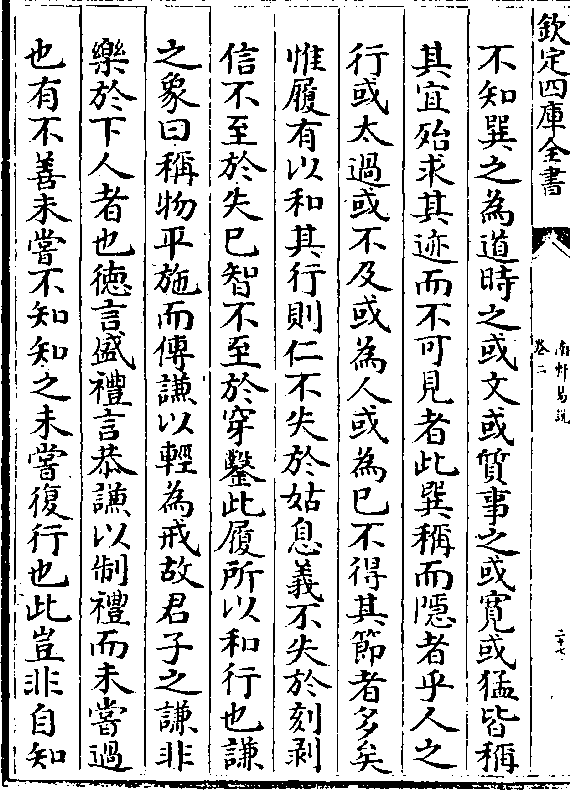 欽定四庫全書
南軒易說
卷二
二十七
不知巽之為道時之或文或質事之或寬或猛皆稱
其宜殆求其迹而不可見者此巽稱而隱者乎人之
行或太過或不及或為人或為已不得其節者多矣
惟履有以和其行則仁不失於姑息義不失於刻剥
信不至於失已智不至於穿鑿此履所以和行也謙
之象曰稱物平施而傳謙以輕為戒故君子之謙非
樂於下人者也徳言盛禮言恭謙以制禮而未嘗過
也有不善未嘗不知知之未嘗復行也此豈非自知